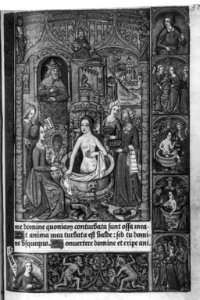 me domine quoniam conturbata sunt ossa mea
Et anima mea turbata est valde: sed tu domi
ne usquequo. Convertere domine et eripe ani